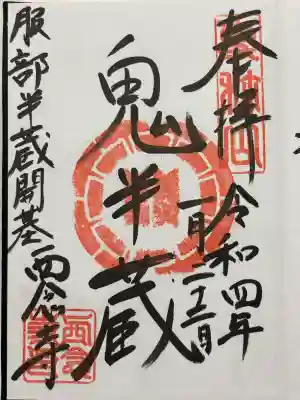 奉拝
令和四年
一月二十二日
鬼半蔵
服部半蔵開基西念寺